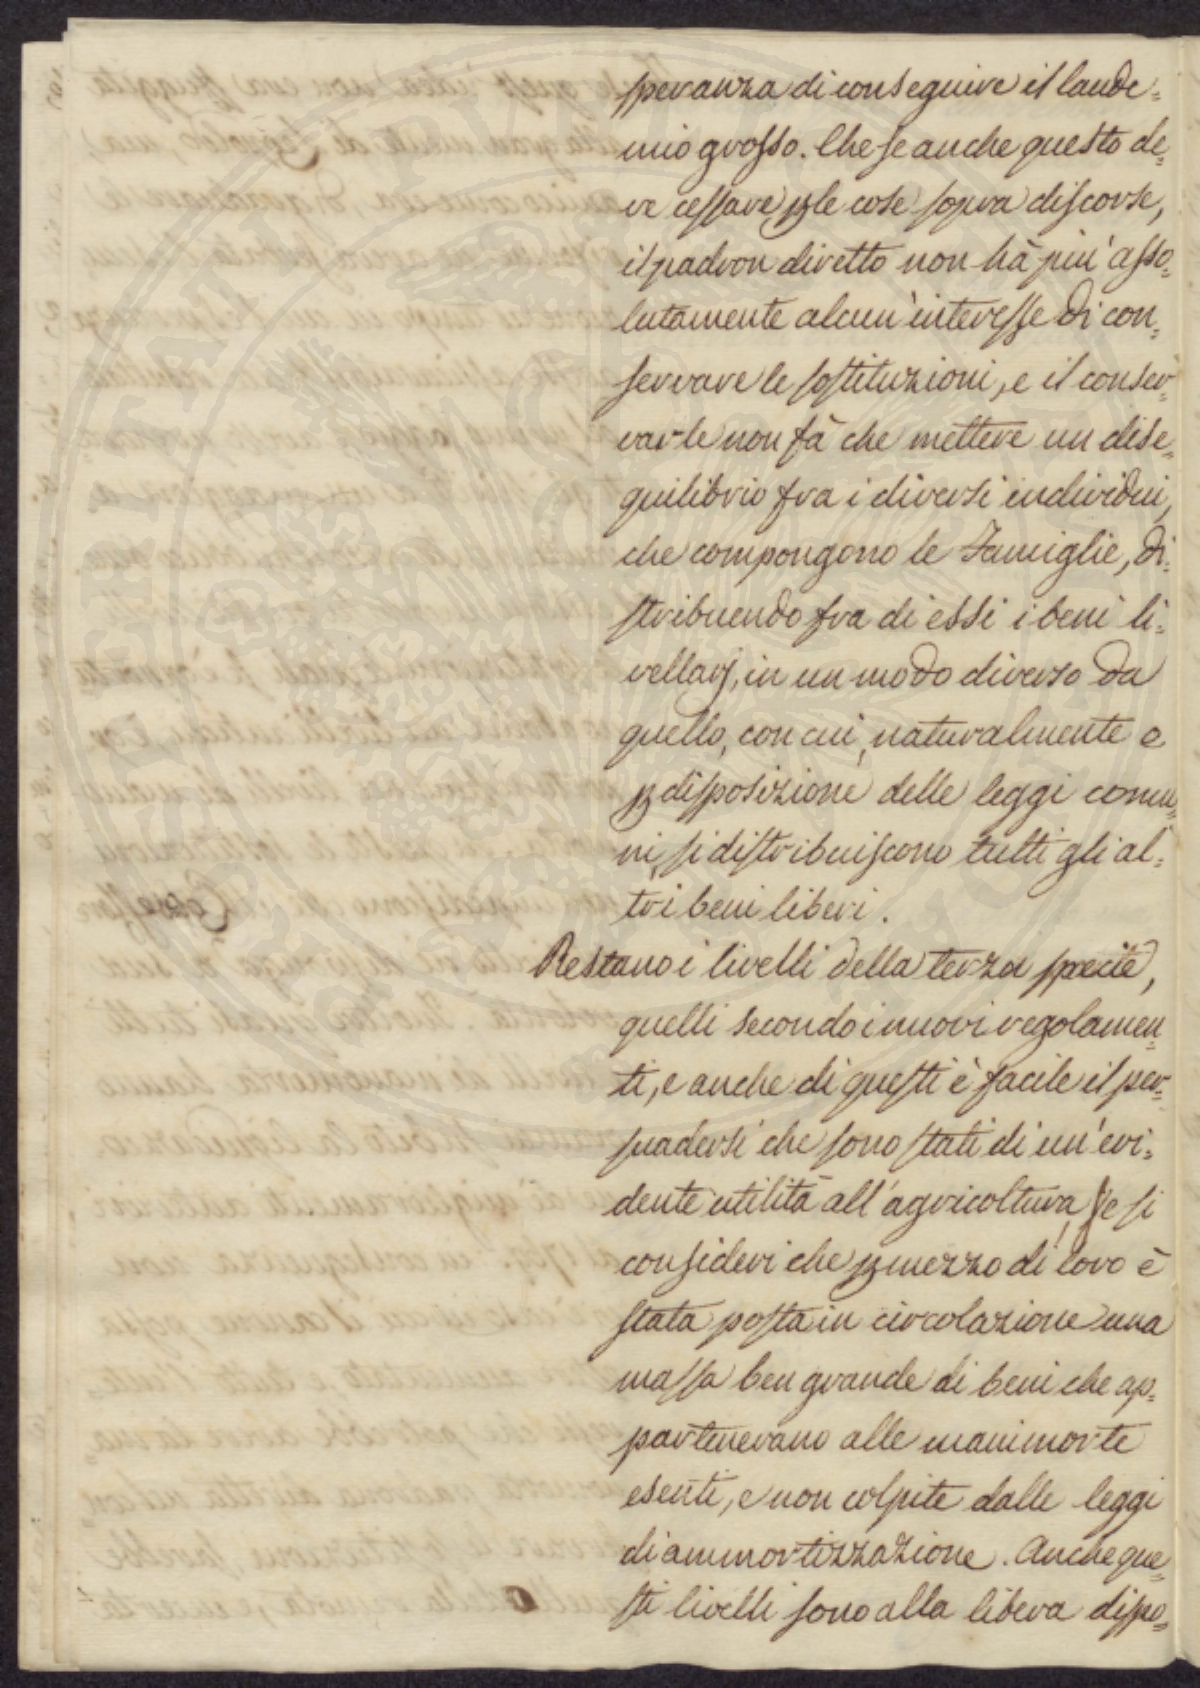 speranza di conseguire il laude=
mio grosso. Che se anche questo de=
ve cessare, p le cose sopra discorse,
il padron diretto non hà più asso=
lutamente alcun' interesse di con=
servare le sostituzioni, e il conser=
varle non fà che mettere un dise=
quilibrio fra i diversi individui,
che compongono le Famiglie, di=
stribuendo fra di essi i beni li=
vellarj, in un modo diverso da
quello, con cui, naturalmente e
p disposizione delle leggi comu=
ni, si distribuiscono tutti gli al=
tri beni liberi.
Restano i livelli della terza specie,
quelli secondo i nuovi regolamen=
ti, e anche di questi è facile il per=
suadersi che sono stati di un' evi=
dente utilità all'agricoltura, se si
consideri che p mezzo di loro è
stata posta in circolazione una
massa ben grande di beni che ap=
partenevano alle manimorte
esenti, e non colpite dalle leggi
di ammortizzazione. Anche que=
sti livelli sono alla libera dispo=